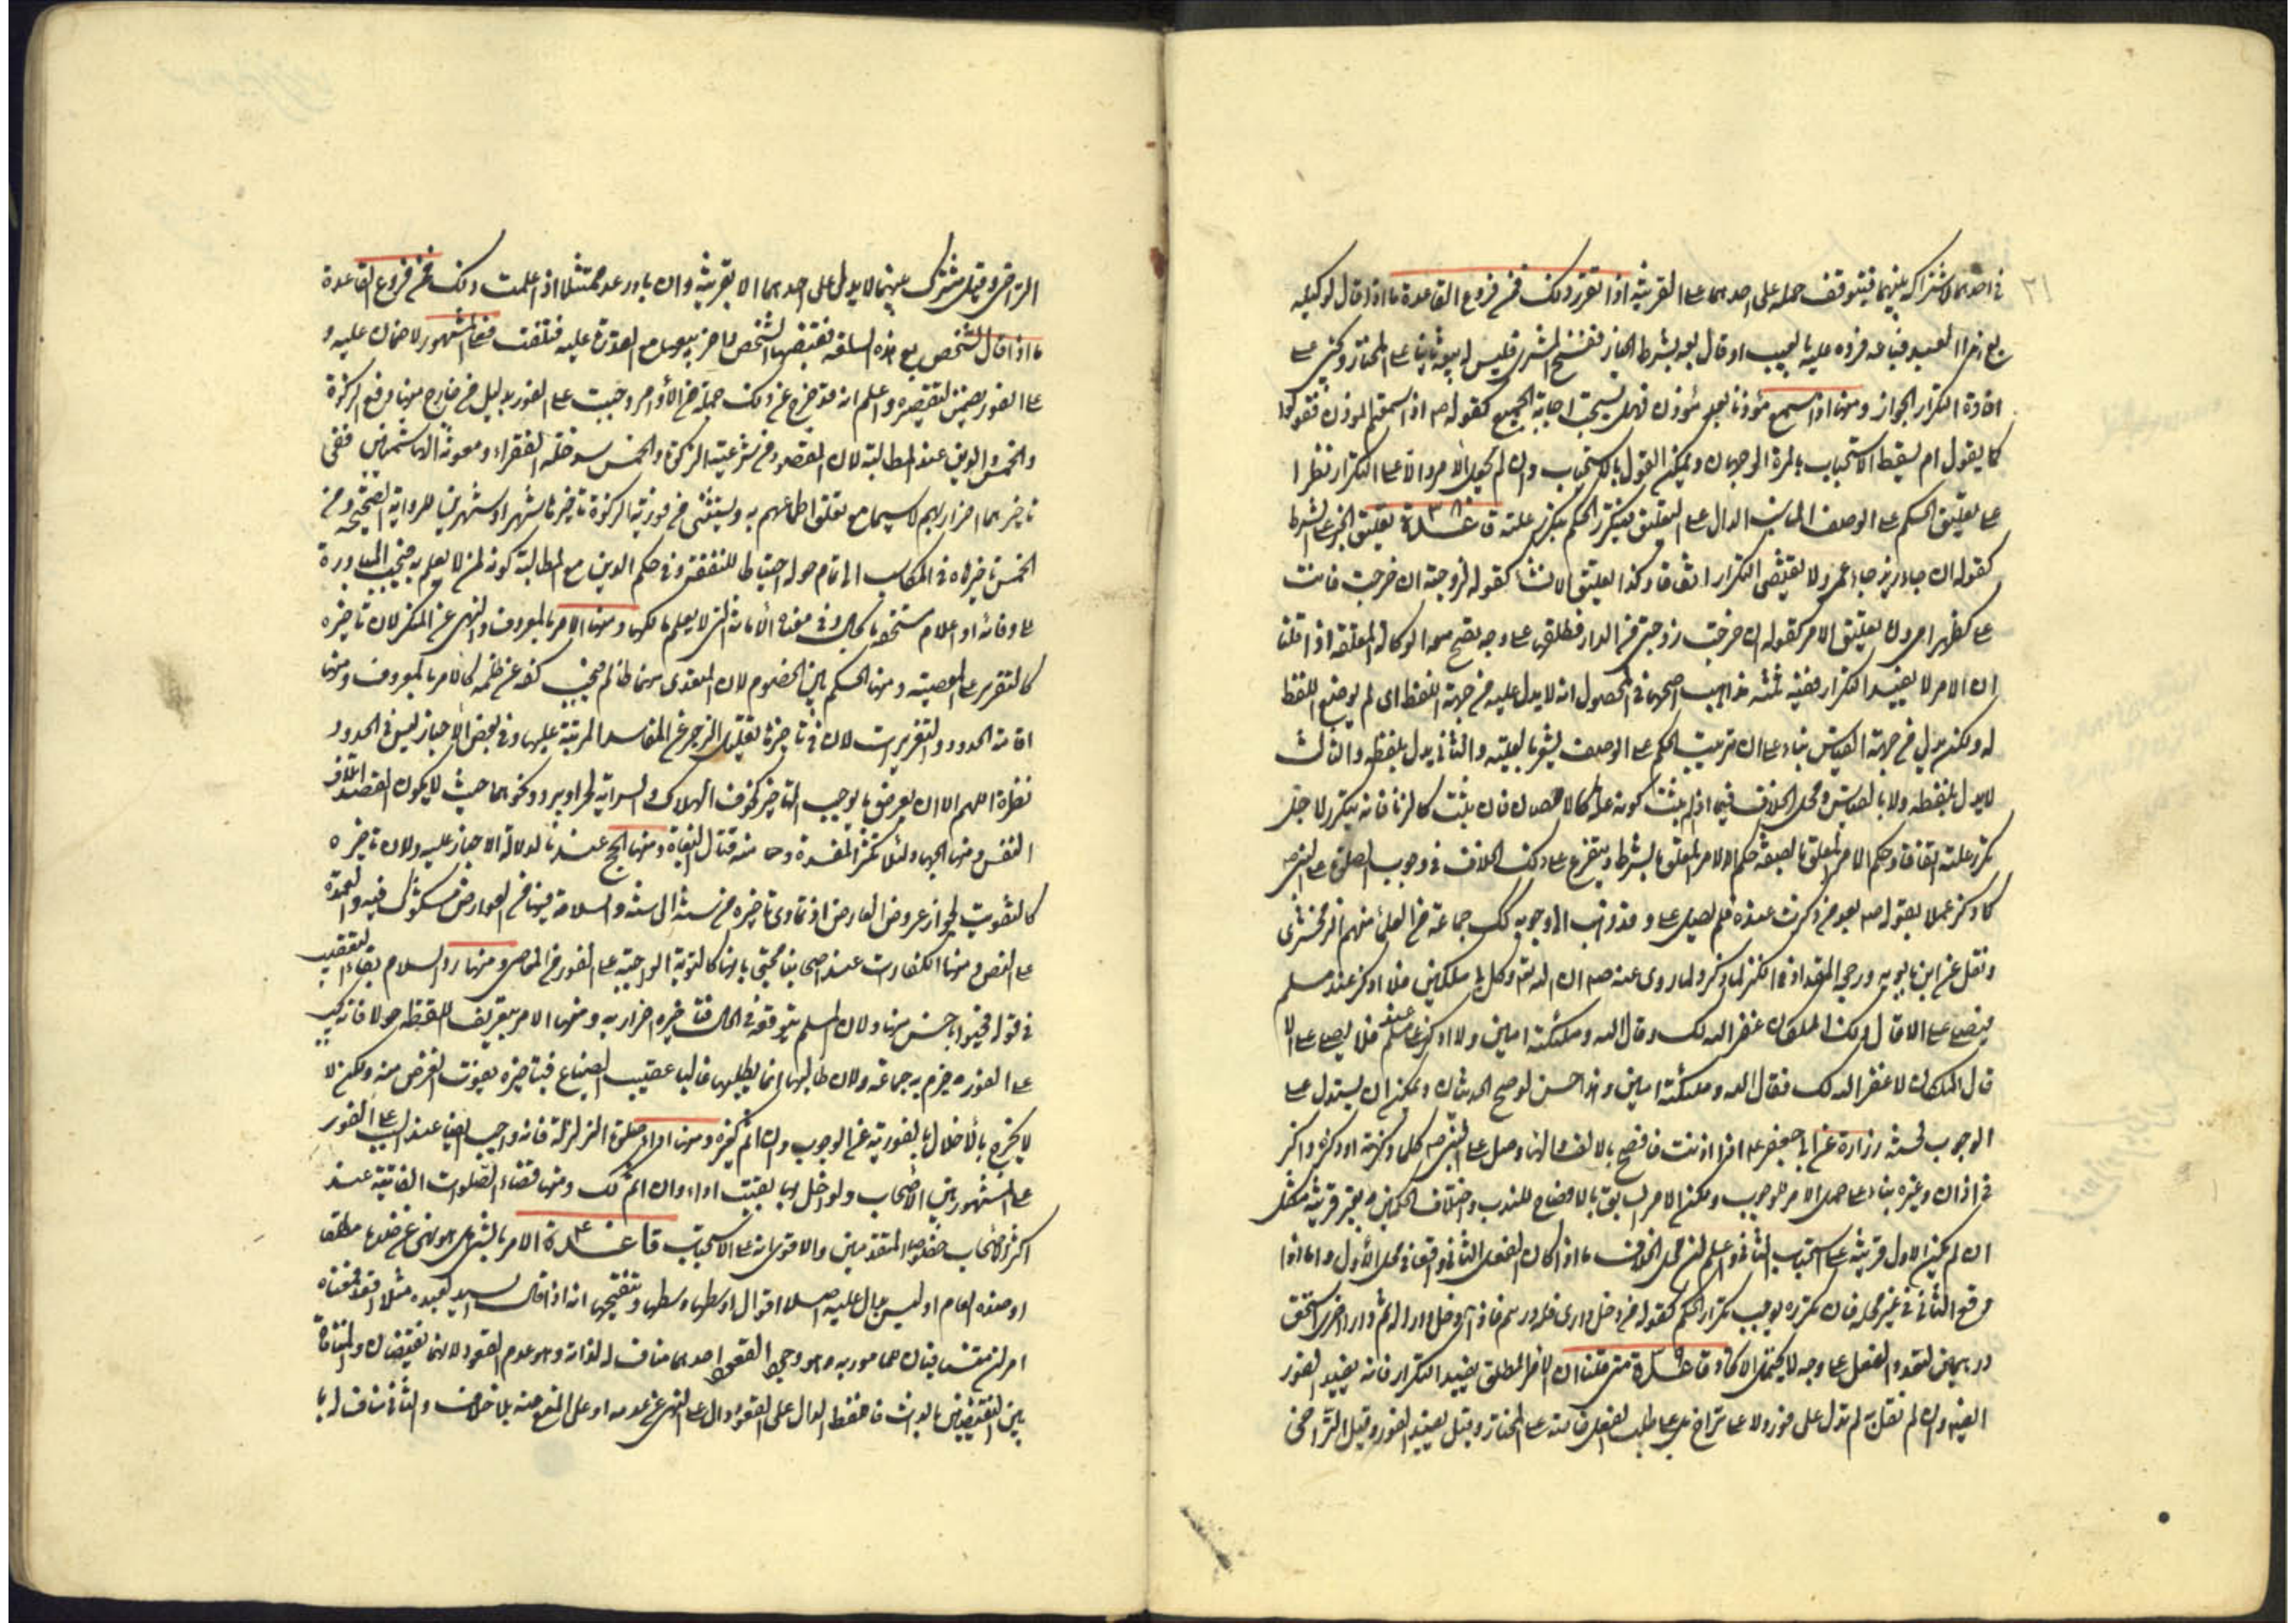 في احدهما لاشتراكه بينهما فيتوقف حمله على احدهما على القرينة اذا تقرر ذلك فمن فروع القاعدة ما اذا قال لوكيله
بع هذا العبد فباعه فرده عليه بالعيب او قال بعه بشرط الخيار ففسخ المشتري فليس له بيعه ثانيا على المختار ويجيء على
افادة التكرار الجواز ومنها اذا سمع مؤذنا بعد مؤذن فهل يستحب اجابة الجميع كقوله ص اذا سمعتم المؤذن فقولوا
كما يقول ام يسقط الاستحباب بالمرة الوجهان ويمكن القول بالاستحباب وان لم نجعل الامر دالا على التكرار نظرا
على تعليق الحكم على الوصف المناسب الدال على التعليق فيتكرر الحكم بتكرر علته قاعدة ٣٨ تعليق الخبر على الشرط
كقوله ان جاء زيد جاء عمرو لا يقتضي التكرار اتفاقا وكذا تعليق الانشاء كقوله لزوجته ان خرجت فانت
على كظهر امي وان تعليق الامر كقوله ان خرجت زوجتي من الدار فطلقها على وجه تصح معه الوكالة المعلقة اذا قلنا
ان الامر لا يفيد التكرار ففيه ثلثة مذاهب اصحها في المحصول انه لا يدل عليه من جهة اللفظ اى لم يوضع اللفظ
له ولكنه يدل من جهة القياس بناء على ان ترتيب الحكم على الوصف يشعر بالعلية والثاني يدل بلفظه والثالث
لا يدل بلفظه ولا بالقياس ومحل الخلاف فيما اذا لم يثبت كونه علة كالاحصان فان يثبت كالزنا فانه يتكرر لاجل
تكرر علته اتفاقا وحكم الامر المعلق بالصفة حكم الامر المعلق بالشرط ويتفرع على ذلك الخلاف في وجوب الصلوة على النبي ص
كلما ذكر عملا بقوله ص بعد من ذكرت عنده فلم يصل على وقد ذهب الى وجوبه لك جماعة من العلماء منهم الزمخشري
ونقل عن ابن بابويه ورجحه المقداد في الكنز لما ذكر ولما روى عنه ص ان الله تعالى وكل بي ملكين فلا اذكر عند مسلم
فيصلي على الا قال ذلك الملكان غفر الله لك وقال الله وملئكته امين ولا اذكر عند مسلم فلا يصلي على الا
قال الملكان لا غفر الله لك فقال الله وملئكته امين وهذا حسن لو صح الحديثان ويمكن ان يستدل على
الوجوب لحسنة زرارة عن ابي جعفر ع اذا اذنت فافصح بالالف والهاء وصل على النبي ص كلما ذكرته او ذكره ذاكر
في اذان وغيره بناء على حمل الامر للوجوب ولكن الامر السابق بالافصاح للندب واختلاف الحكمين بغير قرينة مشكل
ان لم يكن الاول قرينة على استحباب الثاني واعلم ان محل الخلاف ما اذا كان الفعل الثاني واقعا في محل الاول واما اذا
وقع الثاني في غير محله فان تكرره يوجب تكرار الحكم كقوله من دخل داري فله درهم فاذا دخل دارا له ثم دارا اخرى استحق
درهمين لتعدد الفعل على وجه لا يحتمل الا كذا قاعدة ٣٩ متى قلنا ان الامر المطلق يفيد التكرار فانه يفيد الفور
ايضا وان لم نقل به لم يدل على فور ولا على تراخ بل على طلب الفعل خاصة على المختار وقيل يفيد الفور وقيل التراخي
التراخى وقيل مشترك بينهما لا يدل على احدهما الا بقرينة وان بادر عد ممتثلا اذا علمت ذلك فمن فروع القاعدة
ما اذا قال لشخص بع هذه السلعة فقبضها الشخص فاخر بيعها مع القدرة عليه فتلفت فعلى المشهور لا ضمان عليه و
على الفور يضمن لتقصيره واعلم انه قد خرج عن ذلك جملة من الأوامر وجبت على الفور بدليل من خارج منها دفع الزكوة
والخمس والدين عند المطالبة لان المقصود من شرعية الزكوة والخمس سد خلة الفقراء ومعونة الهاشميين ففي
تاخيرهما اضرار بهم لا سيما مع تعلق اطماعهم به ويستثنى من فورية الزكوة تاخيرها شهرا وشهرين للرواية الصحيحة ومن
الخمس تاخيره في المكاسب الى تمام حوله احتياطا للنفقة وفي حكم الدين مع المطالبة كونه لمن لا يعلم به فتجب المبادرة
على وفائه او اعلام مستحقه بالحال وفي معناه الأمانة التي لا يعلم مالكها ومنها الامر بالمعروف والنهى عن المنكر لان تاخيره
كالتقرير على المعصية ومنها الحكم بين الخصوم لان المتعدى منهما ظالم فيجب كفه عن ظلمه كالامر بالمعروف ومنها
اقامة الحدود والتعزيرات لان في تاخيره تقليل الزجر عن المفاسد المرتبة عليها وفي بعض الاخبار ليس في الحدود
نظرة اللهم الا ان يعرض ما يوجب التاخير كخوف الهلاك والسراية لحر او برد ونحوهما حيث لا يكون القصد اتلاف
النفس ومنها الجهاد لئلا تكثر المفسدة ومنه قتال البغاة ومنها الحج عندنا لدلالة الاخبار عليه ولان تاخيره
كالتفويت لجواز عروض العارض اذ تمادى تاخيره من سنة الى سنة والسلامة فيها من العوارض مشكوك فيه والعمدة
على النص ومنها الكفارات عند اصحابنا محتجين بانها كالتوبة الواجبة على الفور من المعاصي ومنها رد السلام بفاء التعقيب
في قوله فحيوا باحسن منها ولان المسلم يتوقعه في الحال فتاخيره اضرار به ومنها الامر بتعريف اللقطة حولا فانه يجب
على الفور جزم به جماعة ولان طالبها انما يطلبها غالبا عقيب الضياع فبتاخيره يفوت الغرض منه ولكن لا
لا يخرج بالاخلال بالفورية عن الوجوب وان اثم كغيره ومنها اداء صلوة الزلزلة فانه واجب ايضا عند السبب على الفور
على المشهور بين الاصحاب ولو اخل بها بقيت اداء وان اثم لك ومنها قضاء الصلوات الفائتة عند
اكثر الاصحاب خصوصا المتقدمين والاقوى انه على الاستحباب قاعدة ٤٠ الامر بالشئ هل هو نهى عن ضده مطلقا
او ضده العام او ليس بدال عليه اصلا اقوال اوسطها وسطها وتنقيحها انه اذا قال السيد لعبده مثلا اقعد فمعناه
امران متنافيان هما مامور به وهو وجود القعود احدهما مناف له لذاته وهو عدم القعود لانهما نقيضان والمنافاة
بين النقيضين بالذات فاللفظ الدال على القعود دال على النهى عن عدمه او على المنع منه بلا خلاف والثاني مناف له با